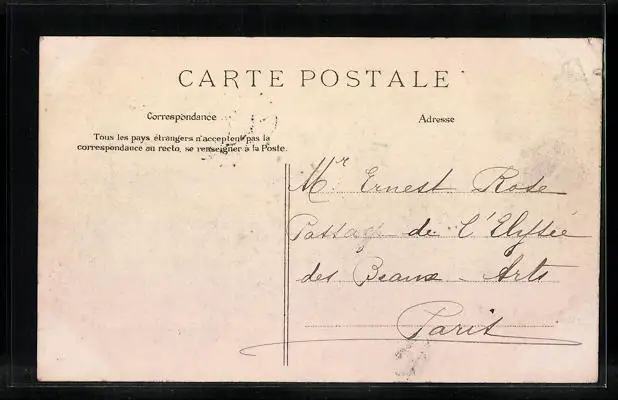 CARTE POSTALE
Correspondance
Adresse
Tous les pays étrangers n'acceptent pas la
correspondance au recto, se renseigner à la Poste.
Mr Ernest Rose
Passage de l'Elysée
des Beaux-Arts
Paris